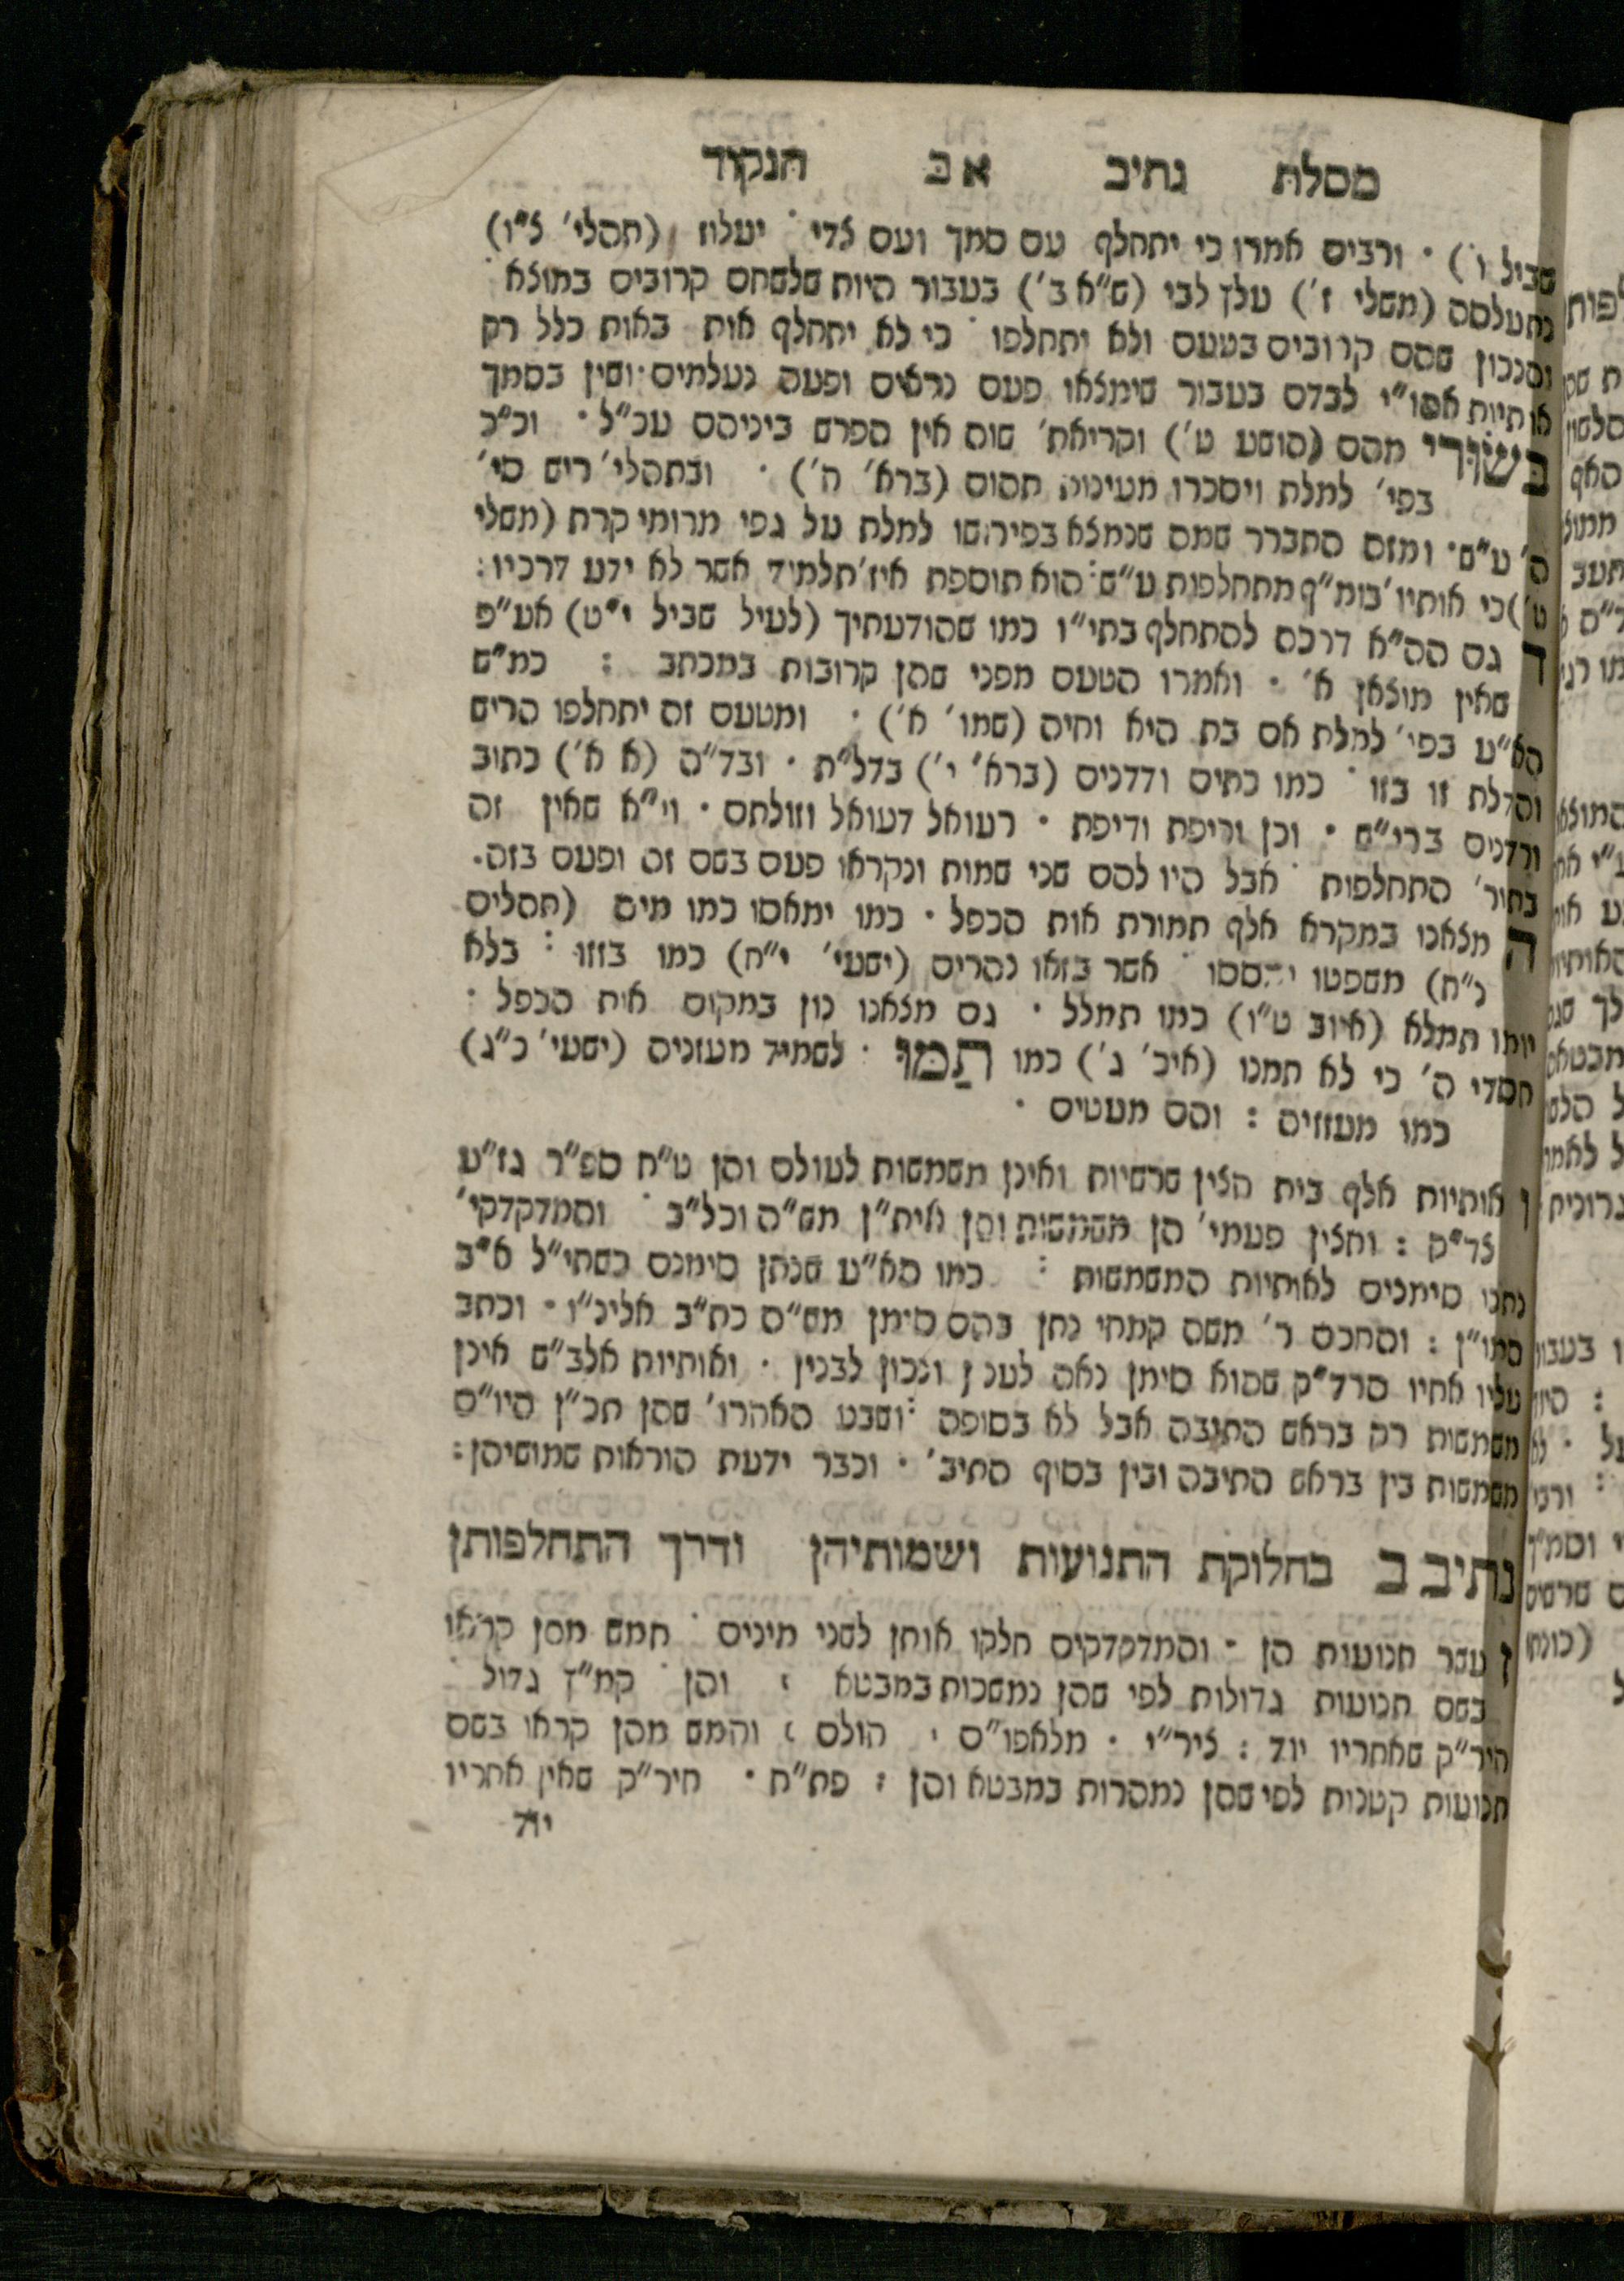 מסלת נתיב א ב הנקוד
שביל ו') · ורבים אמרו כי יתחלף עם סמך ועם צדי · יעלוז (תהלי' צ"ו)
נתעלסה (משלי ז') עלץ לבי (ש"א ב') בעבור היות שלשתם קרובים במוצא ·
והנכון שהם קרובים בטעם ולא יתחלפו · כי לא יתחלף אות באות כלל רק
אותיות אהו"י לבדם בעבור שימצאו פעם נראים ופעם נעלמים · ושין בסמך
בְּשׂוּרִי מהם (הושע ט') וקריאת' שוה אין הפרש ביניהם עכ"ל · וכ"כ
בפי' למלת ויסכרו מעינות תהום (ברא' ח') · ובתהלי' ריש סי'
ה' ע"ש · ומזה התברר שמה שנמצא בפירושו למלת על גפי מרומי קרת (משלי
ט') כי אותיו' בומ"ף מתחלפות ע"ש : הוא תוספת איז' תלמיד אשר לא ידע דרכיו :
ד גם הה"א דרכה להתחלף בתי"ו כמו שהודעתיך (לעיל שביל י"ט) אע"פ
שאין מוצאן א' · ואמרו הטעם מפני שהן קרובות במכתב : כמ"ש
הא"ע בפי' למלת אם בת היא וחיה (שמו' א') · ומטעם זה יתחלפו הריש
והדלת זו בזו · כמו כתים ודדנים (ברא' י') בדל"ת · ובד"ה (א א') כתוב
ורדנים ברי"ש · וכן וריפת ודיפת · רעואל דעואל וזולתם · וי"א שאין זה
בתור' התחלפות · אבל היו להם שני שמות ונקראו פעם בשם זה ופעם בזה ·
ה מצאנו במקרא אלף תמורת אות הכפל · כמו ימאסו כמו מים (תהלים
נ"ח) משפטו יהססו · אשר בזאו נהרים (ישעי' י"ח) כמו בזזו : בלא
יומו תמלא (איוב ט"ו) כמו תמלל · גם מצאנו נון במקום אות הכפל ·
חסדי ה' כי לא תמנו (איכ' ג') כמו תַמּוּ · לשמיד מעזניה (ישעי' כ"ג)
כמו מעזזיה : והם מעטים ·
ו אותיות אלף בית חצין שרשיות ואינן משמשות לעולם והן ט"ח ספ"ר גז"ע
צד"ק : וחצין פעמי' הן משמשות והן אית"ן מש"ה וכל"ב · והמדקדקי'
נתנו סימנים לאותיות המשמשות : כמו הא"ע שנתן סימנם כשתי"ל א"ב
המו"ן : והחכם ר' משה קמחי נתן בהם סימן מש"ה כת"ב אלינ"ו · וכתב
עליו אחיו הרד"ק שהוא סימן נאה לענין ונכון לבנין · ואותיות אלב"ש אינן
משמשות רק בראש התיבה אבל לא בסופה : ושבע האחרו' שהן תכ"ן היו"ם
משמשות בין בראש התיבה ובין בסוף התיב' · וכבר ידעת הוראות שמושיהן :
נתיב ב בחלוקת התנועות ושמותיהן ודרך התחלפותן
ז עשר תנועות הן · והמדקדקים חלקו אותן לשני מינים · חמש מהן קראו
בשם תנועות גדולות לפי שהן נמשכות במבטא : והן · קמ"ץ גדול ·
חיר"ק שאחריו יוד : ציר"י · מלאפו"ם · חולם : וחמש מהן קראו בשם
תנועות קטנות לפי שהן נמהרות במבטא והן : פת"ח · חיר"ק שאין אחריו
יוד